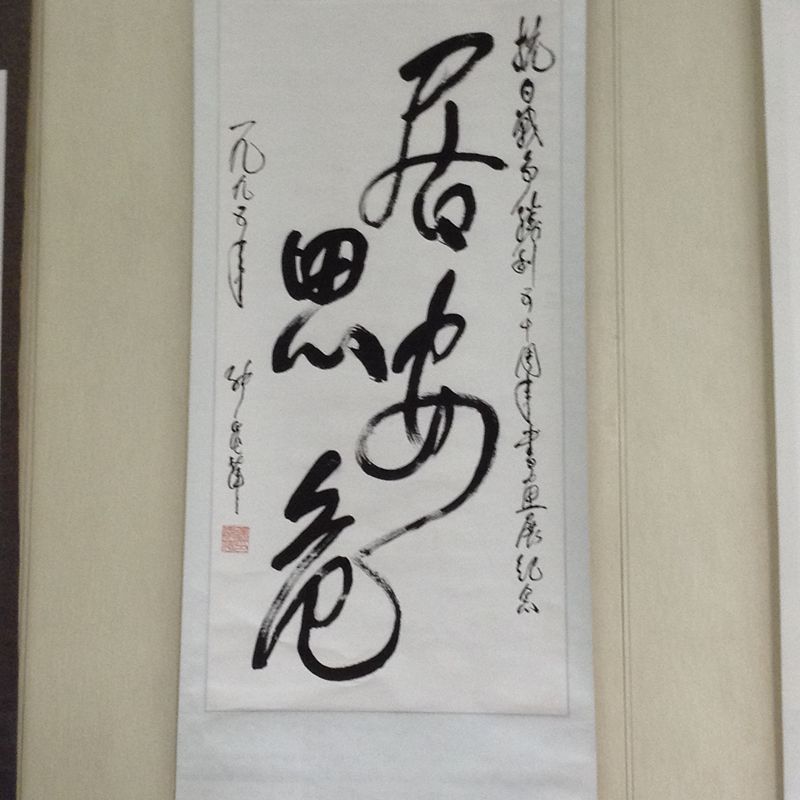 抗日战争胜利五十周年书画展纪念
居安
思危
一九九五年